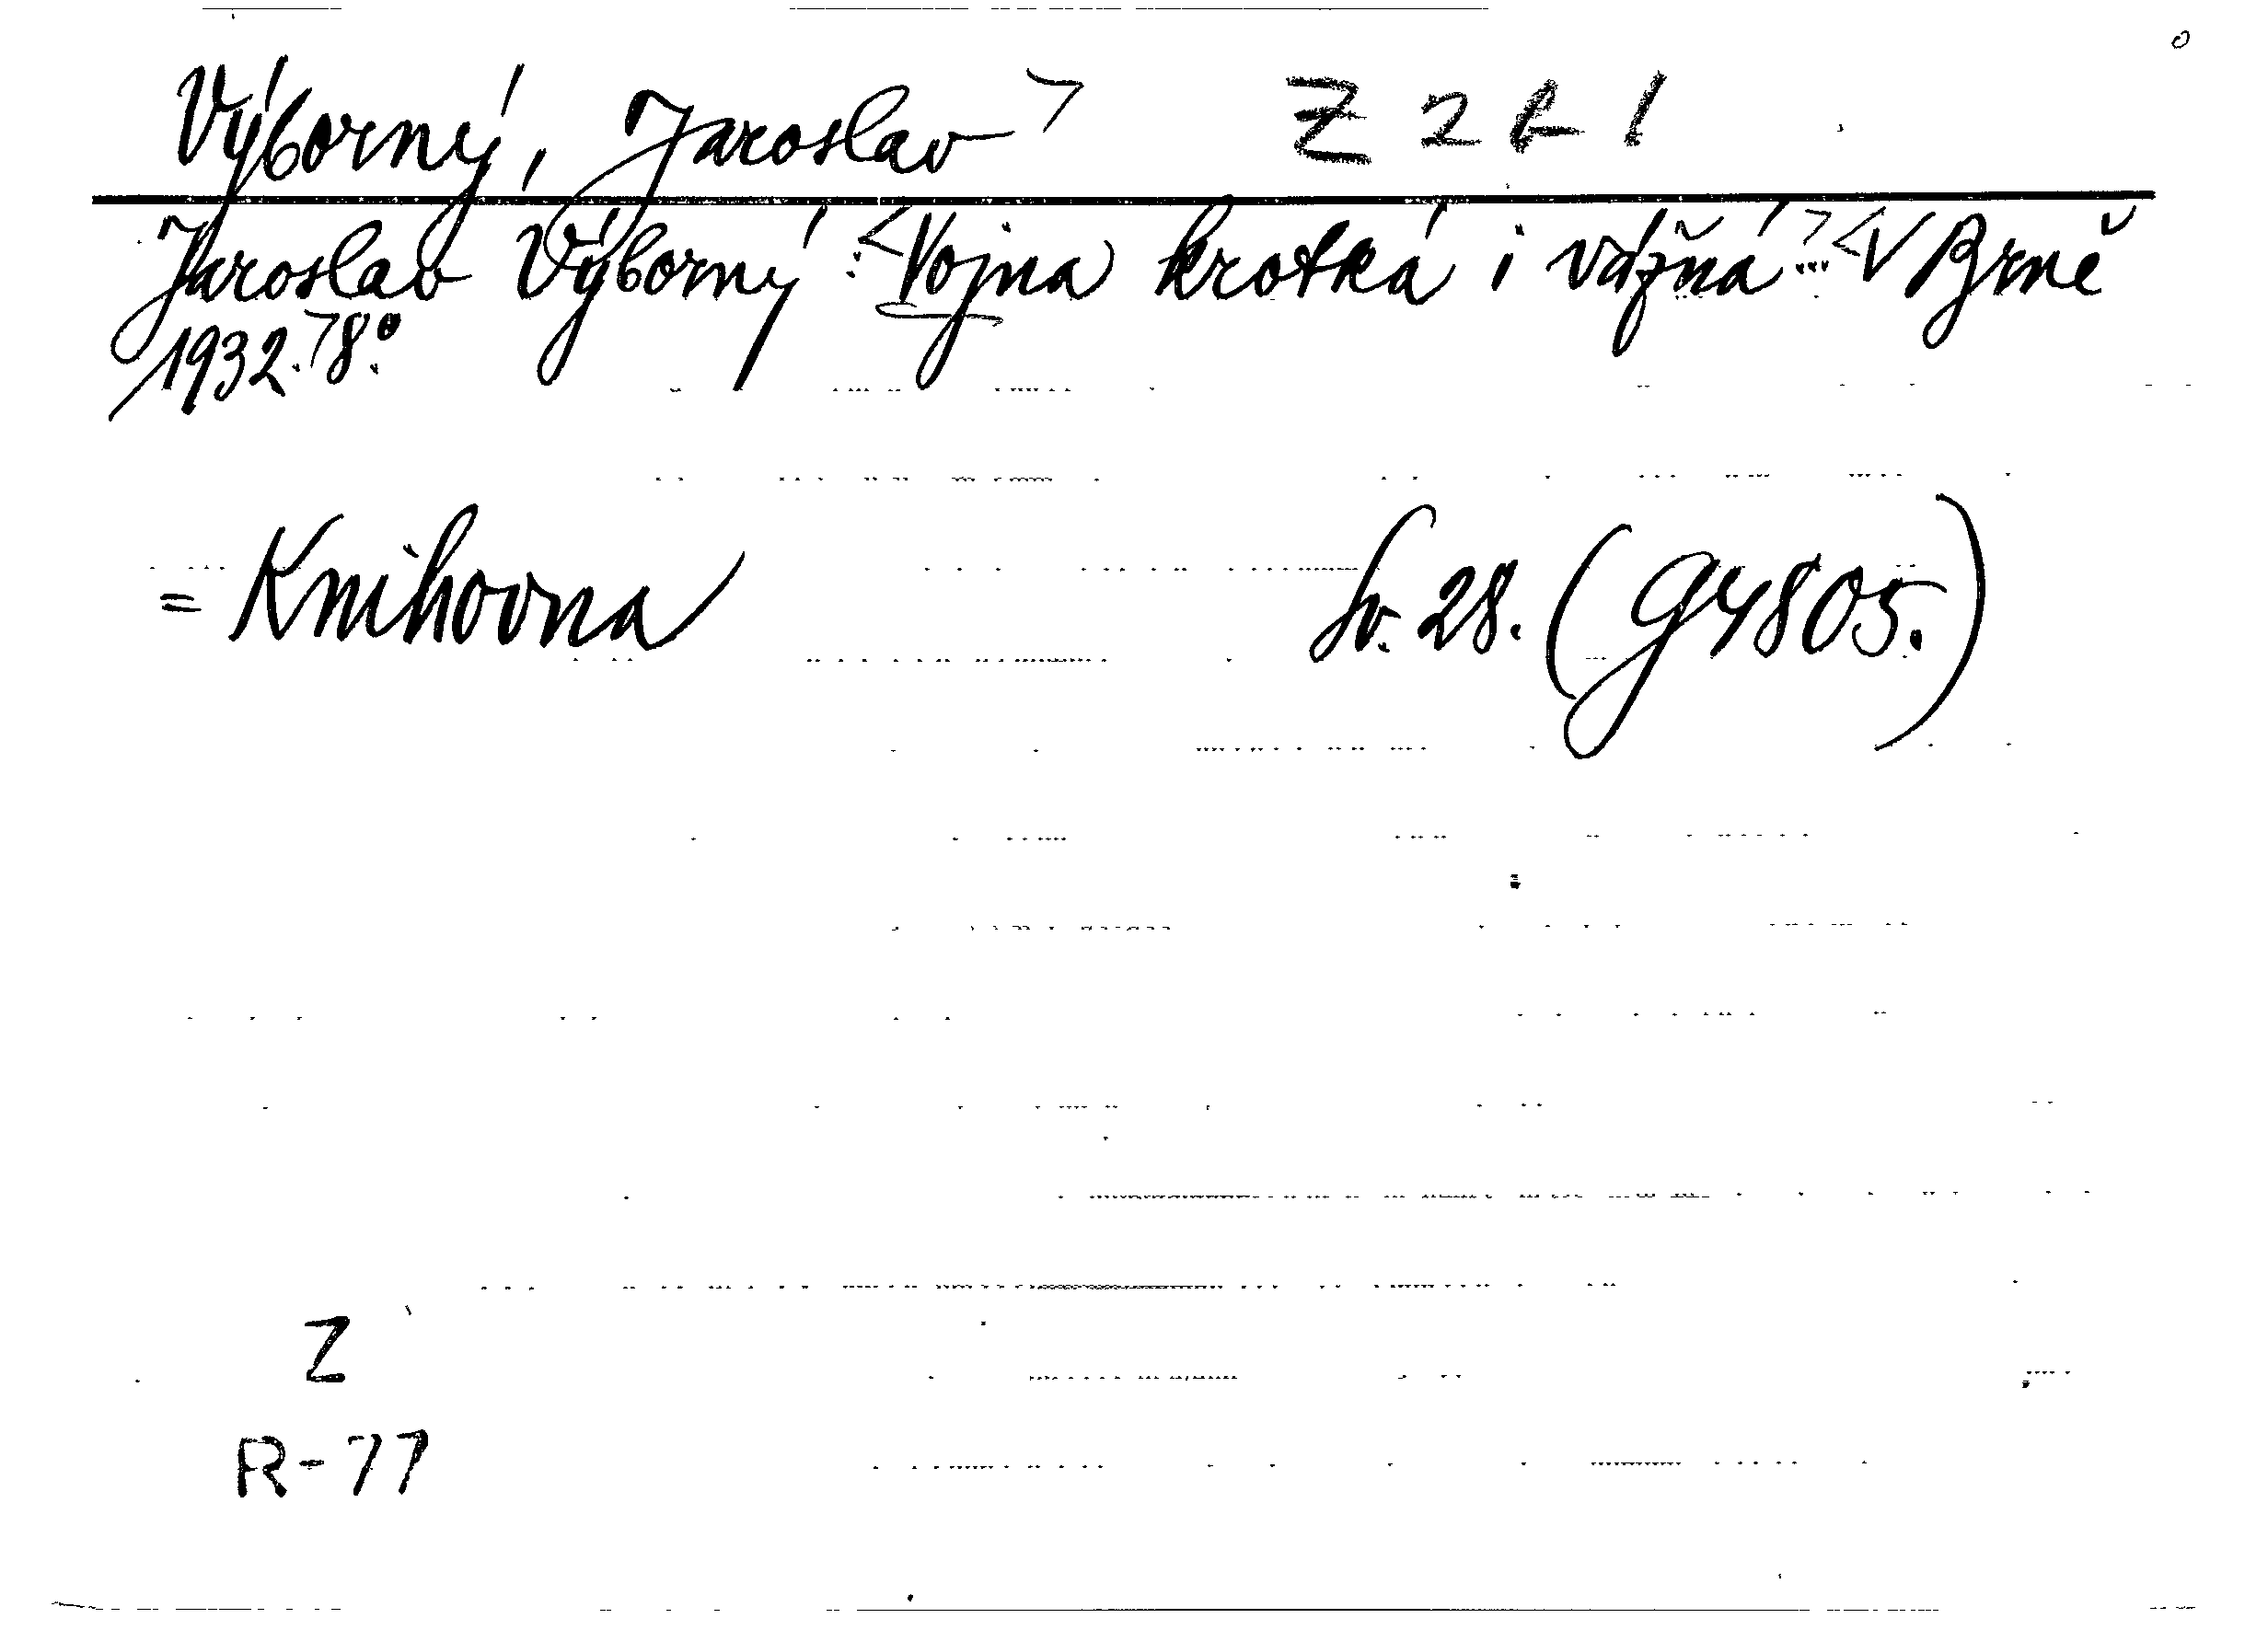 Výborný, Jaroslav > Z 2 k 1
Jaroslav Výborný: <Vojna krotká i vážná...> <V Brně
1932.> 8°.
= Knihovna Sv. 28. (G 4805.)
Z
R-77